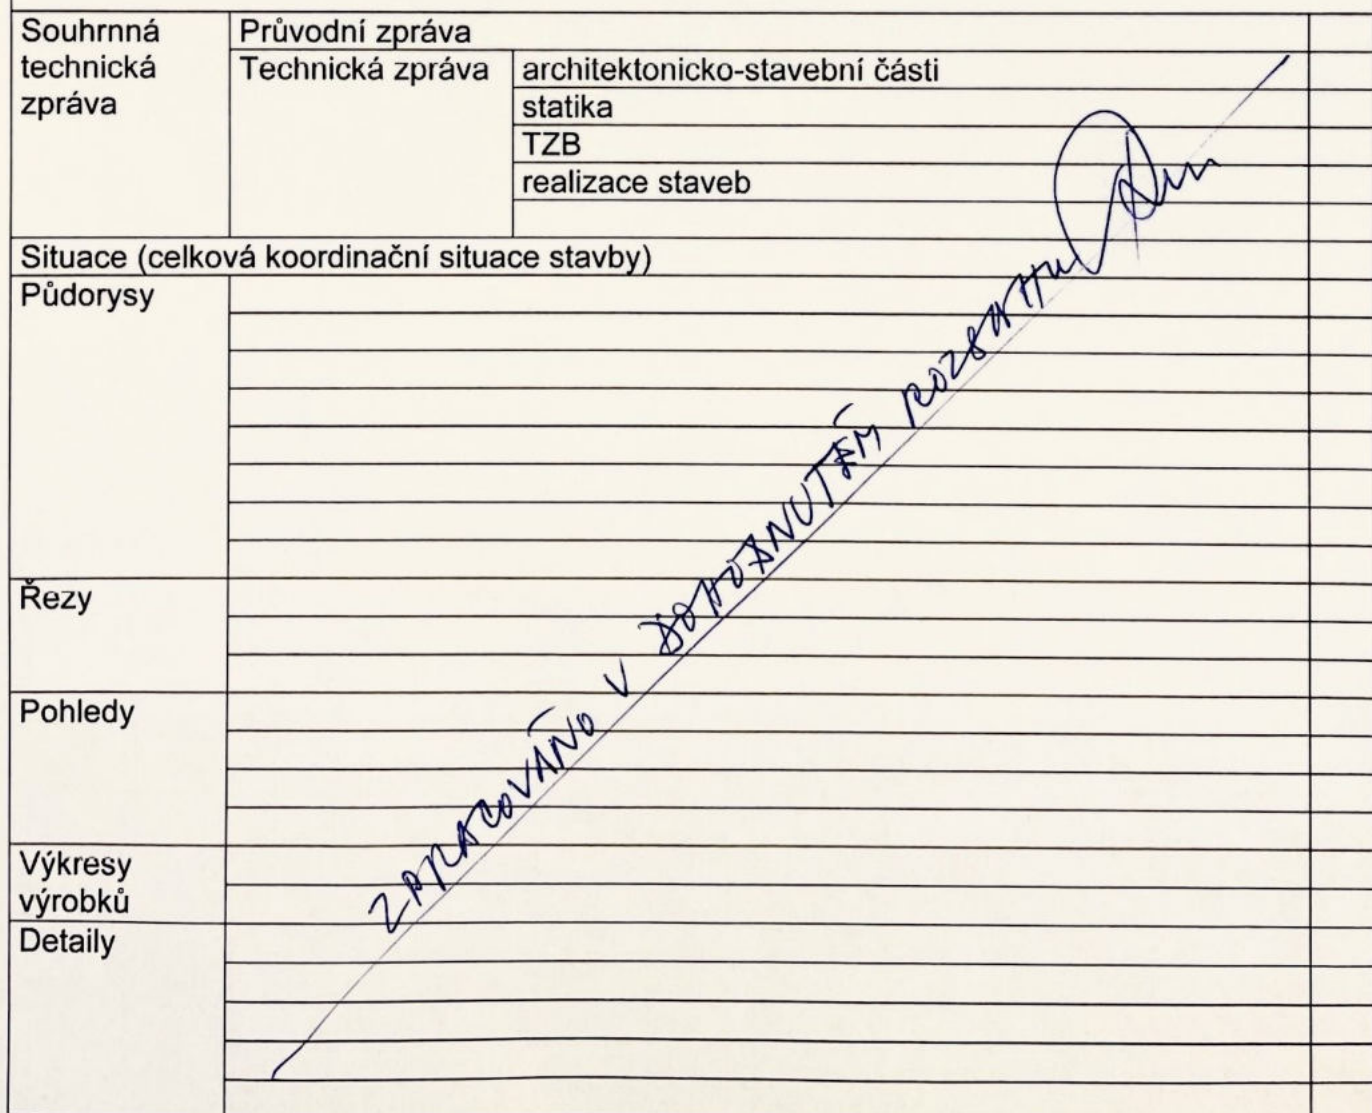 Souhrnná technická zpráva
Průvodní zpráva
Technická zpráva
architektonicko-stavební části
statika
TZB
realizace staveb
Situace (celková koordinační situace stavby)
Půdorysy
Řezy
Pohledy
Výkresy výrobků
Detaily
ZPRACOVÁNO V DOHODNUTÉM ROZSAHU